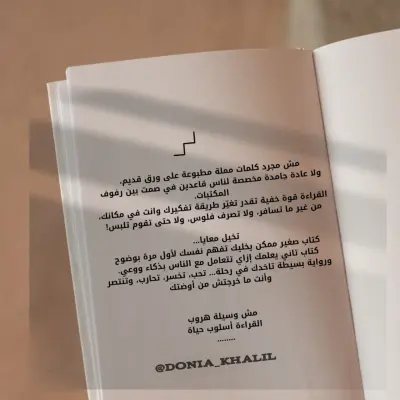 مش مجرد كلمات مملة مطبوعة على ورق قديم،
ولا عادة جامدة مخصصة لناس قاعدين في صمت بين رفوف
المكتبات.
القراءة قوة خفية تقدر تغيّر طريقة تفكيرك وانت في مكانك،
من غير ما تسافر، ولا تصرف فلوس، ولا حتى تقوم تلبس!
تخيل معايا...
كتاب صغير ممكن يخليك تفهم نفسك لأول مرة بوضوح
كتاب تاني يعلمك إزاي تتعامل مع الناس بذكاء ووعي.
ورواية بسيطة تاخدك في رحلة... تحب، تخسر، تحارب، وتنتصر
وأنت ما خرجتش من أوضتك
مش وسيلة هروب
القراءة أسلوب حياة
........
@DONIA_KHALIL